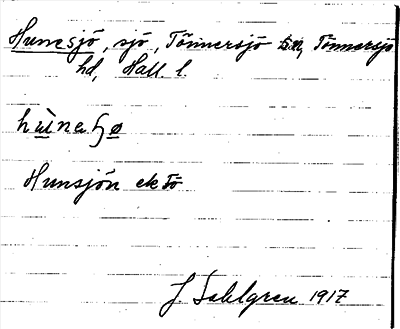 Hunesjö, sjö, Tönnersjö sn, Tönnersjö
hd, Hall. l.
hùneɧø
Hunsjön ek Tö
J. Sahlgren 1917